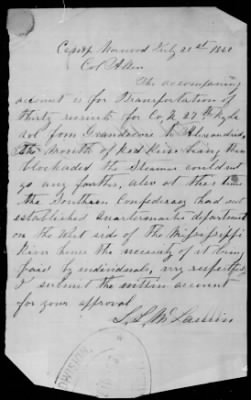 Camp Norwood July 21st 186
Col Allen
The accompanying
account is for Transportation of
thirty recruits for Co, K 27th Regt
Vol from Grandecore to Alexandria,
The Mouth of Red River being then
blockaded the Steamer could not
go any farther, also at the time
the Southern Confederacy had not
established Quartermaster department
on the West side of the Mississippi
River hence the necessity of it being
paid by individuals, very respectfully
I submit the within account
for your approval